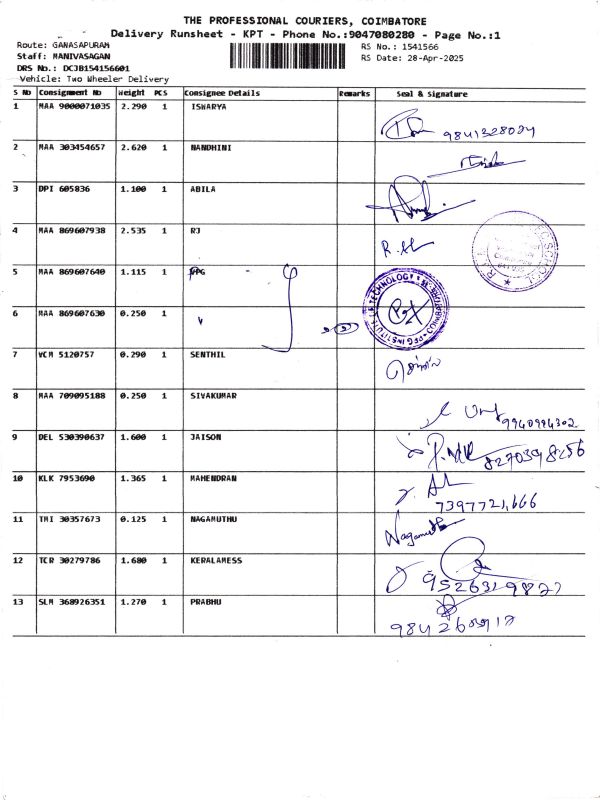 THE PROFESSIONAL COURIERS, COIMBATORE
Delivery Runsheet - KPT - Phone No.:9047080280 - Page No.:1
Route: GANASAPURAM
RS No.: 1541566
Staff: MANIVASAGAN
RS Date: 28-Apr-2025
DRS No.: DCJB154156601
Vehicle: Two Wheeler Delivery
S No Consignment No Weight PCS Consignee Details Remarks Seal & Signature
1 MAA 9000071035 2.290 1 ISWARYA
2 MAA 303454657 2.620 1 NANDHINI
3 DPI 605836 1.100 1 ABILA
4 MAA 869607938 2.535 1 RJ
5 MAA 869607640 1.115 1 PPG
6 MAA 869607630 0.250 1
7 VCM 5120757 0.290 1 SENTHIL
செந்தில்
8 MAA 709095188 0.250 1 SIVAKUMAR
9940994302
9 DEL 530390637 1.600 1 JAISON
8270398256
10 KLK 7953690 1.365 1 MAHENDRAN
7397721,666
11 TMI 30357673 0.125 1 NAGAMUTHU
12 TCR 30279786 1.680 1 KERALAMESS
13 SLM 368926351 1.270 1 PRABHU